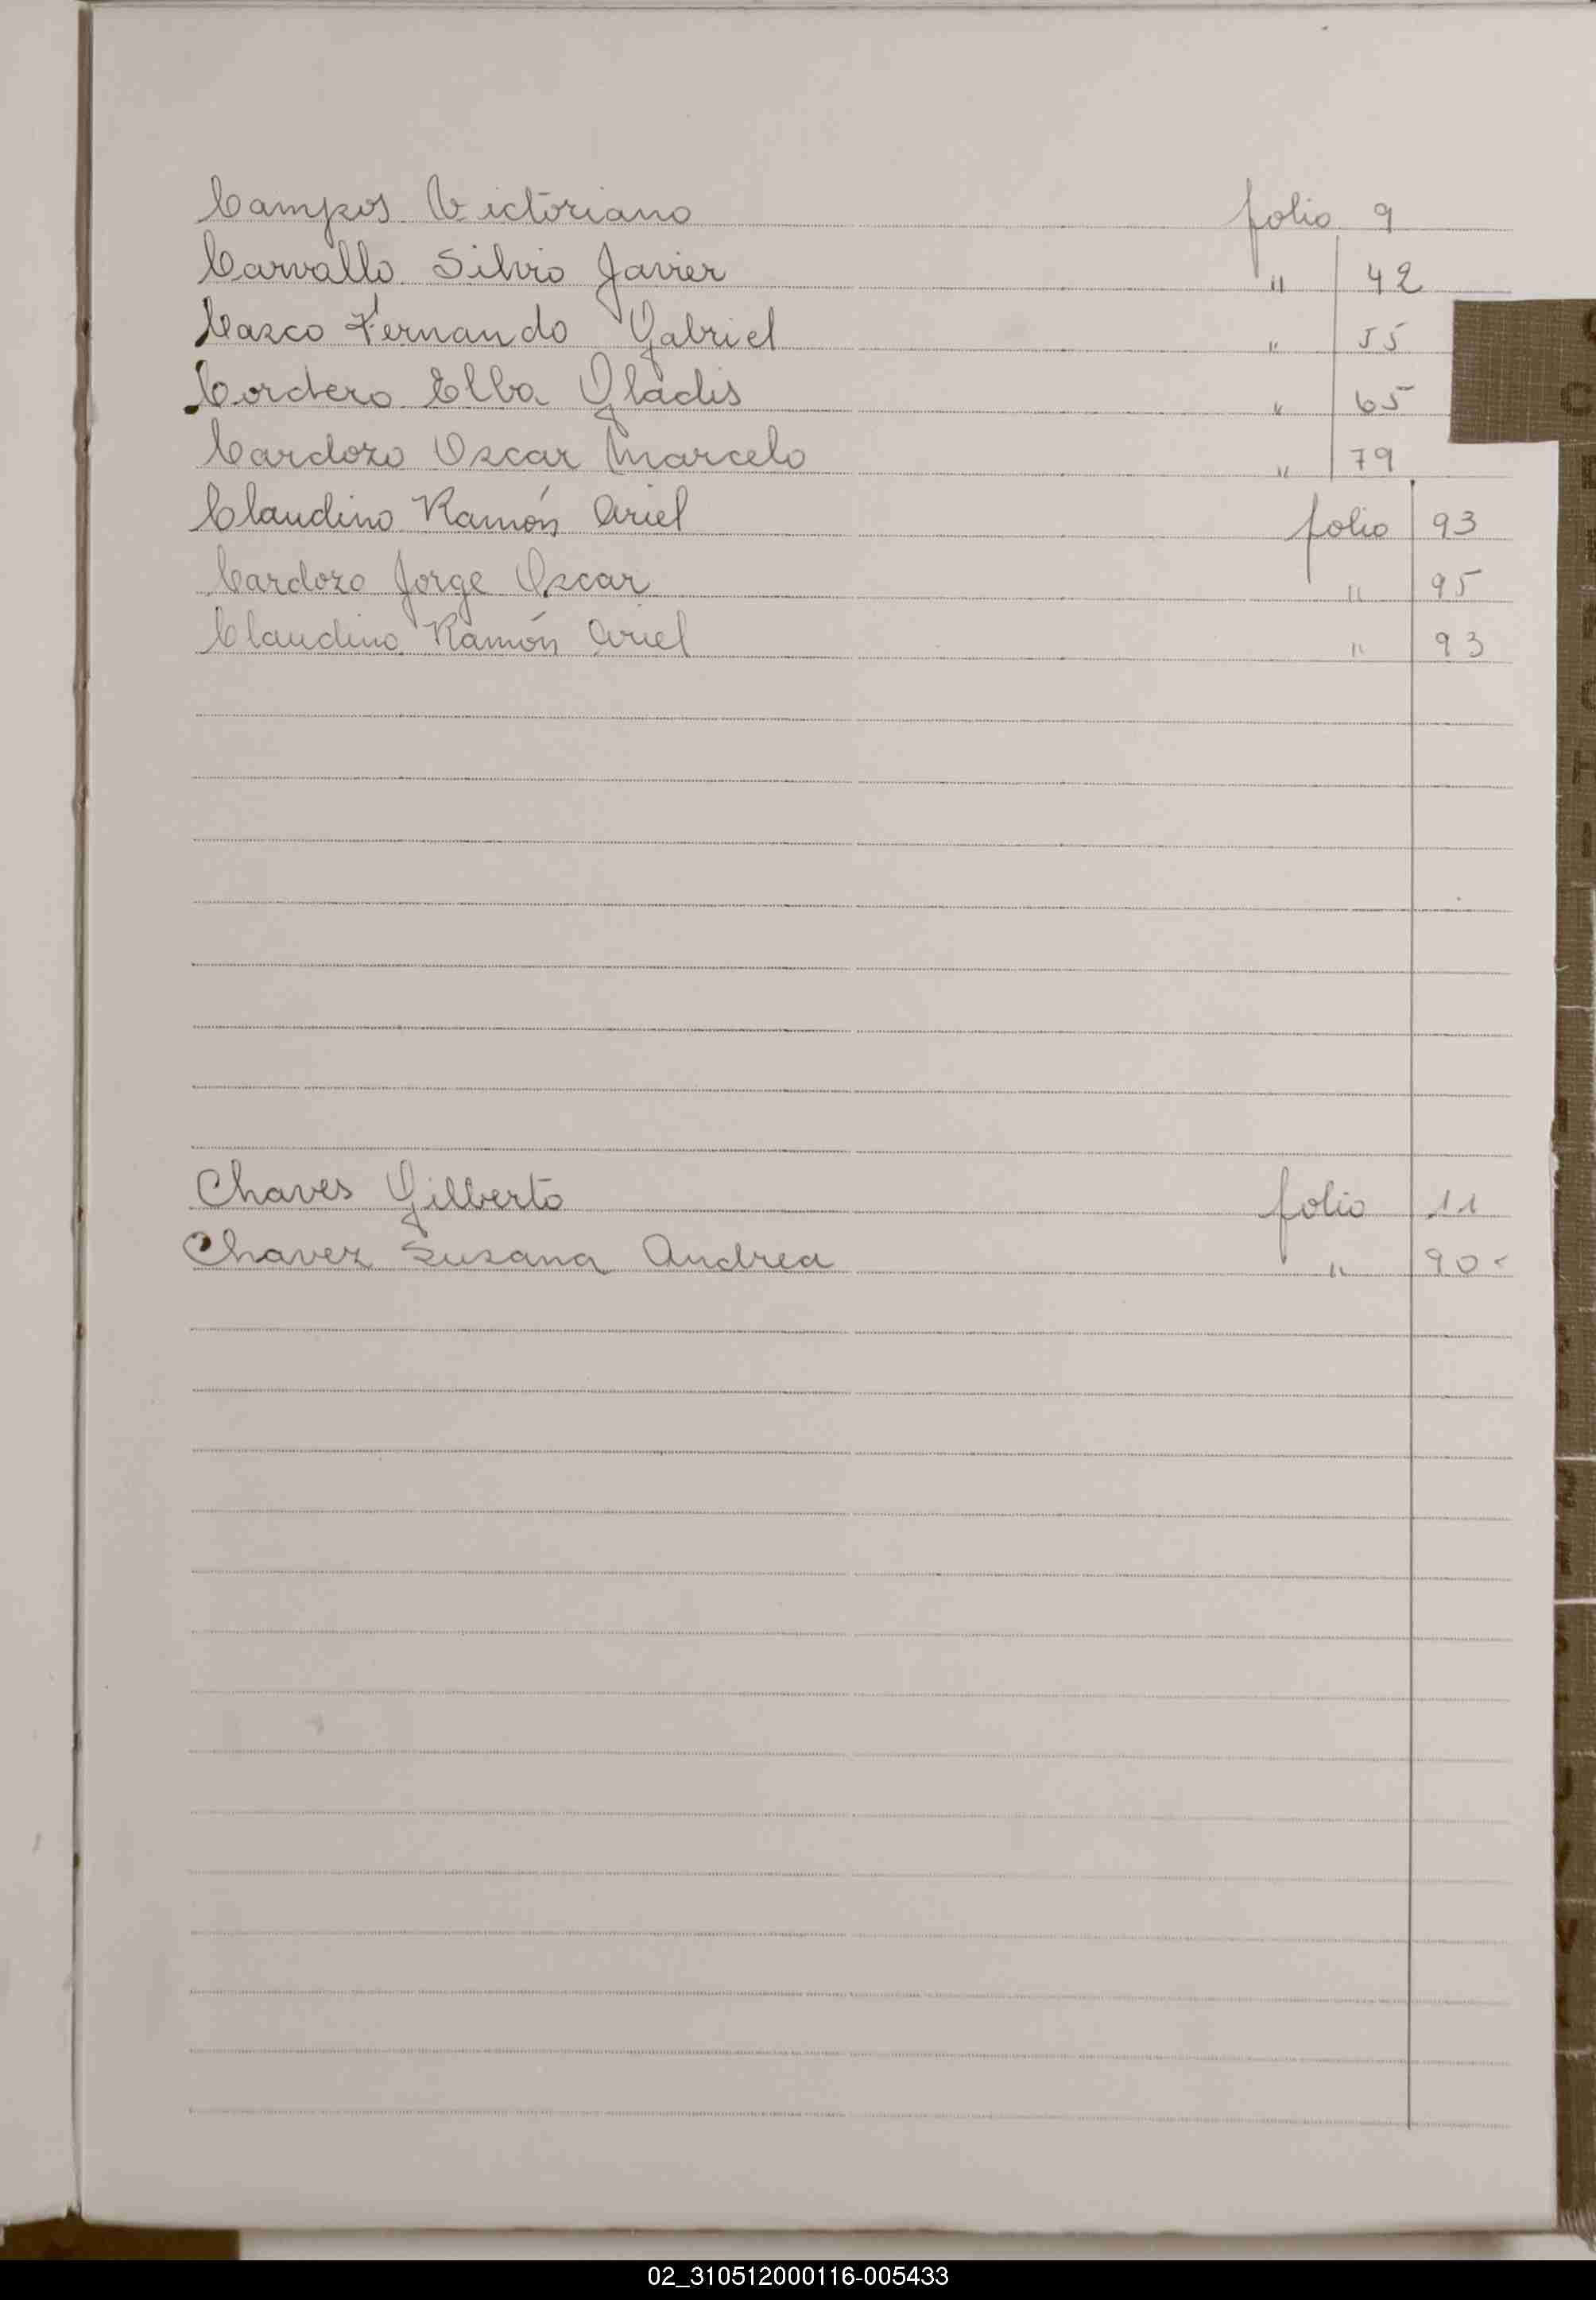 Campos Victoriano folio 9
Carvallo Silvio Javier " 42
Casco Fernando Gabriel " 55
Cordero Elba Gladis " 65
Cardozo Oscar Marcelo " 79
Claudino Ramón Ariel folio 93
Cardozo Jorge Oscar " 95
Claudino Ramón Ariel " 93
Chaves Gilberto folio 11
Chavez Susana Andrea " 90-
02_310512000116-005433